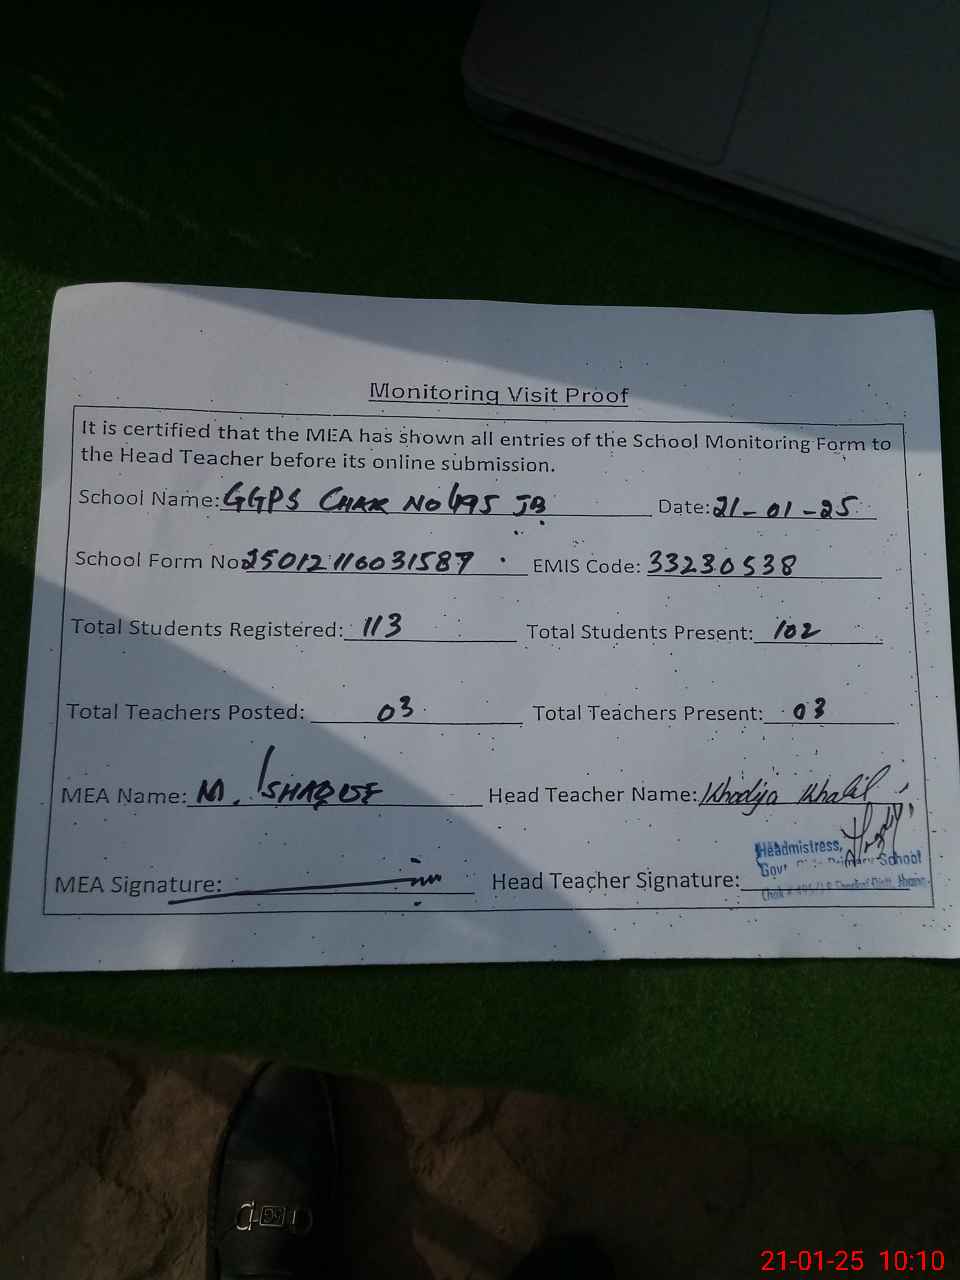 Monitoring Visit Proof
It is certified that the MEA has shown all entries of the School Monitoring Form to
the Head Teacher before its online submission.
School Name: GGPS CHAK NO 495 JB Date: 21-01-25
School Form No 25012116031587 EMIS Code: 33230538
Total Students Registered: 113 Total Students Present: 102
Total Teachers Posted: 03 Total Teachers Present: 03
MEA Name: M. ISHAQUE Head Teacher Name: Khadija Khalil
Headmistress,
Govt Primary School
MEA Signature: Head Teacher Signature:
21-01-25 10:10